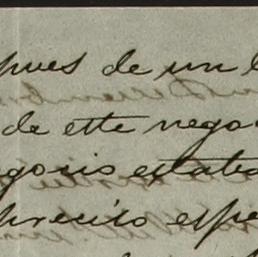 pues de un
de este nego
gocio estaba
preciso espe